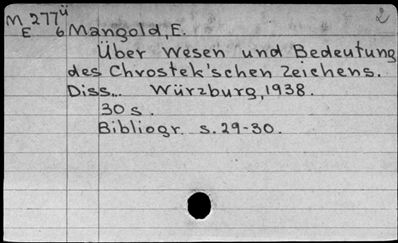 M 277ü 2
E 6 Mangold, E.
Über Wesen und Bedeutung
des Chvostek'schen Zeichens.
Diss... Würzburg, 1938.
30 s.
Bibliogr. s. 29-30.